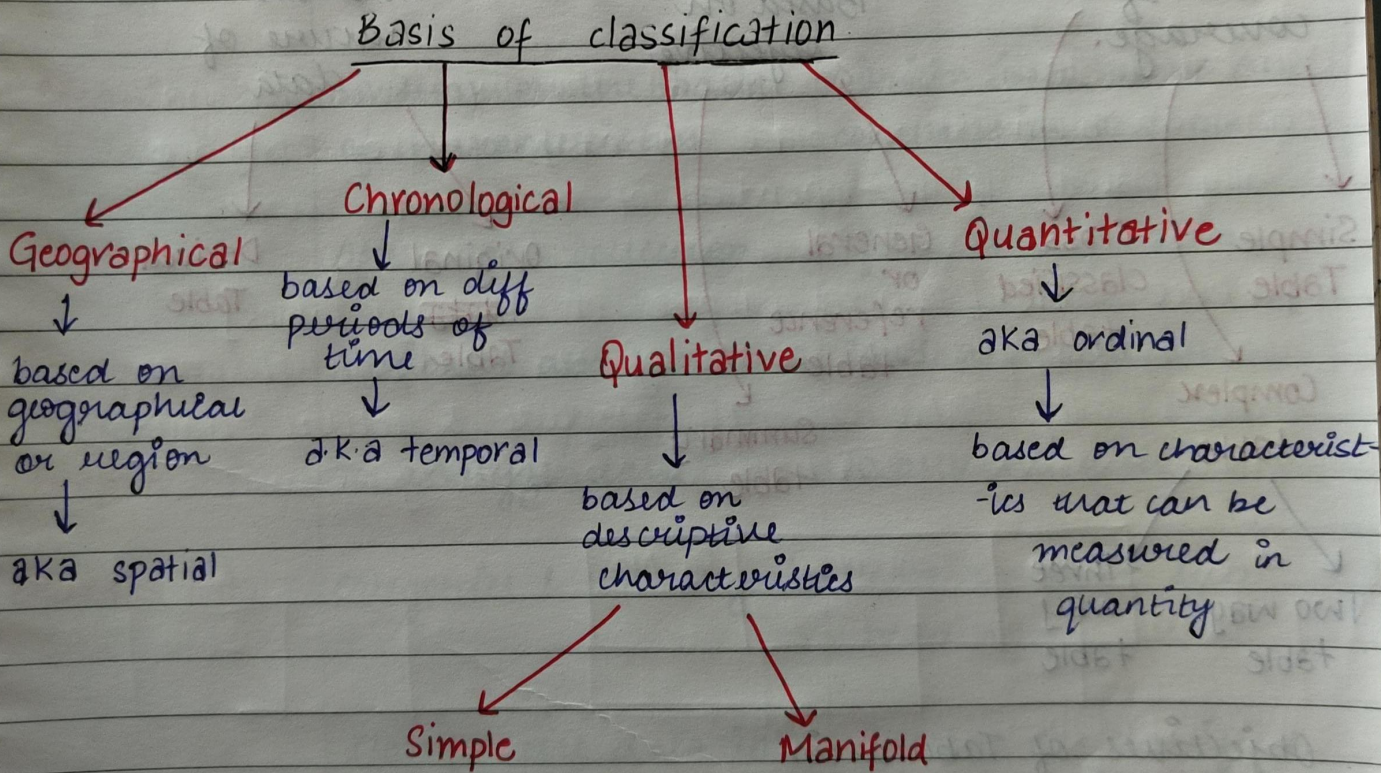 Basis of classification
Geographical
based on
geographical
or region
aka spatial
Chronological
based on diff
periods of
time
a.k.a temporal
Qualitative
based on
descriptive
characteristics
Simple
Manifold
Quantitative
aka ordinal
based on characterist-
-ics that can be
measured in
quantity